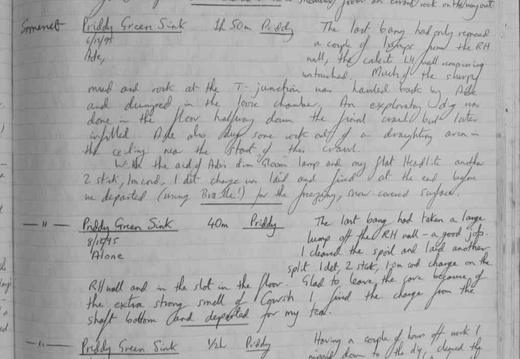 Somerset Priddy Green Sink 1h 50m Priddy The last bang had only removed
6/12/95 a couple of lumps from the RH
Ade, wall, the calcite LH wall remaining
untouched. Much of the slurpy
mud and rock at the T-junction was hauled back by Ade
and dumped in the loose chamber. An exploratory dig was
done in the floor halfway down the final crawl but later
infilled. Ade also dug some rock out of a draughting area in
the ceiling near the start of this crawl.
With the aid of Ade's dim Zoom lamp and my flat Headlite another
2 stick, 1m cord, 1 det charge was laid and fired at the end before
we departed (using Brattle!) for the freezing, snow-covered surface.
— " — Priddy Green Sink 40m Priddy The last bang had taken a large
8/12/95 lump off the RH wall - a good job.
Alone I cleared the spoil and laid another
split 1 det, 2 stick, 1m cord charge on the
RH wall and in the slot in the floor. Glad to leave the cave because of
the extra strong smell of I fired the charge from the
shaft bottom and departed for my tea.
— " — Priddy Green Sink ½h Priddy Having a couple of hours off work I
down to the dig, cleared the